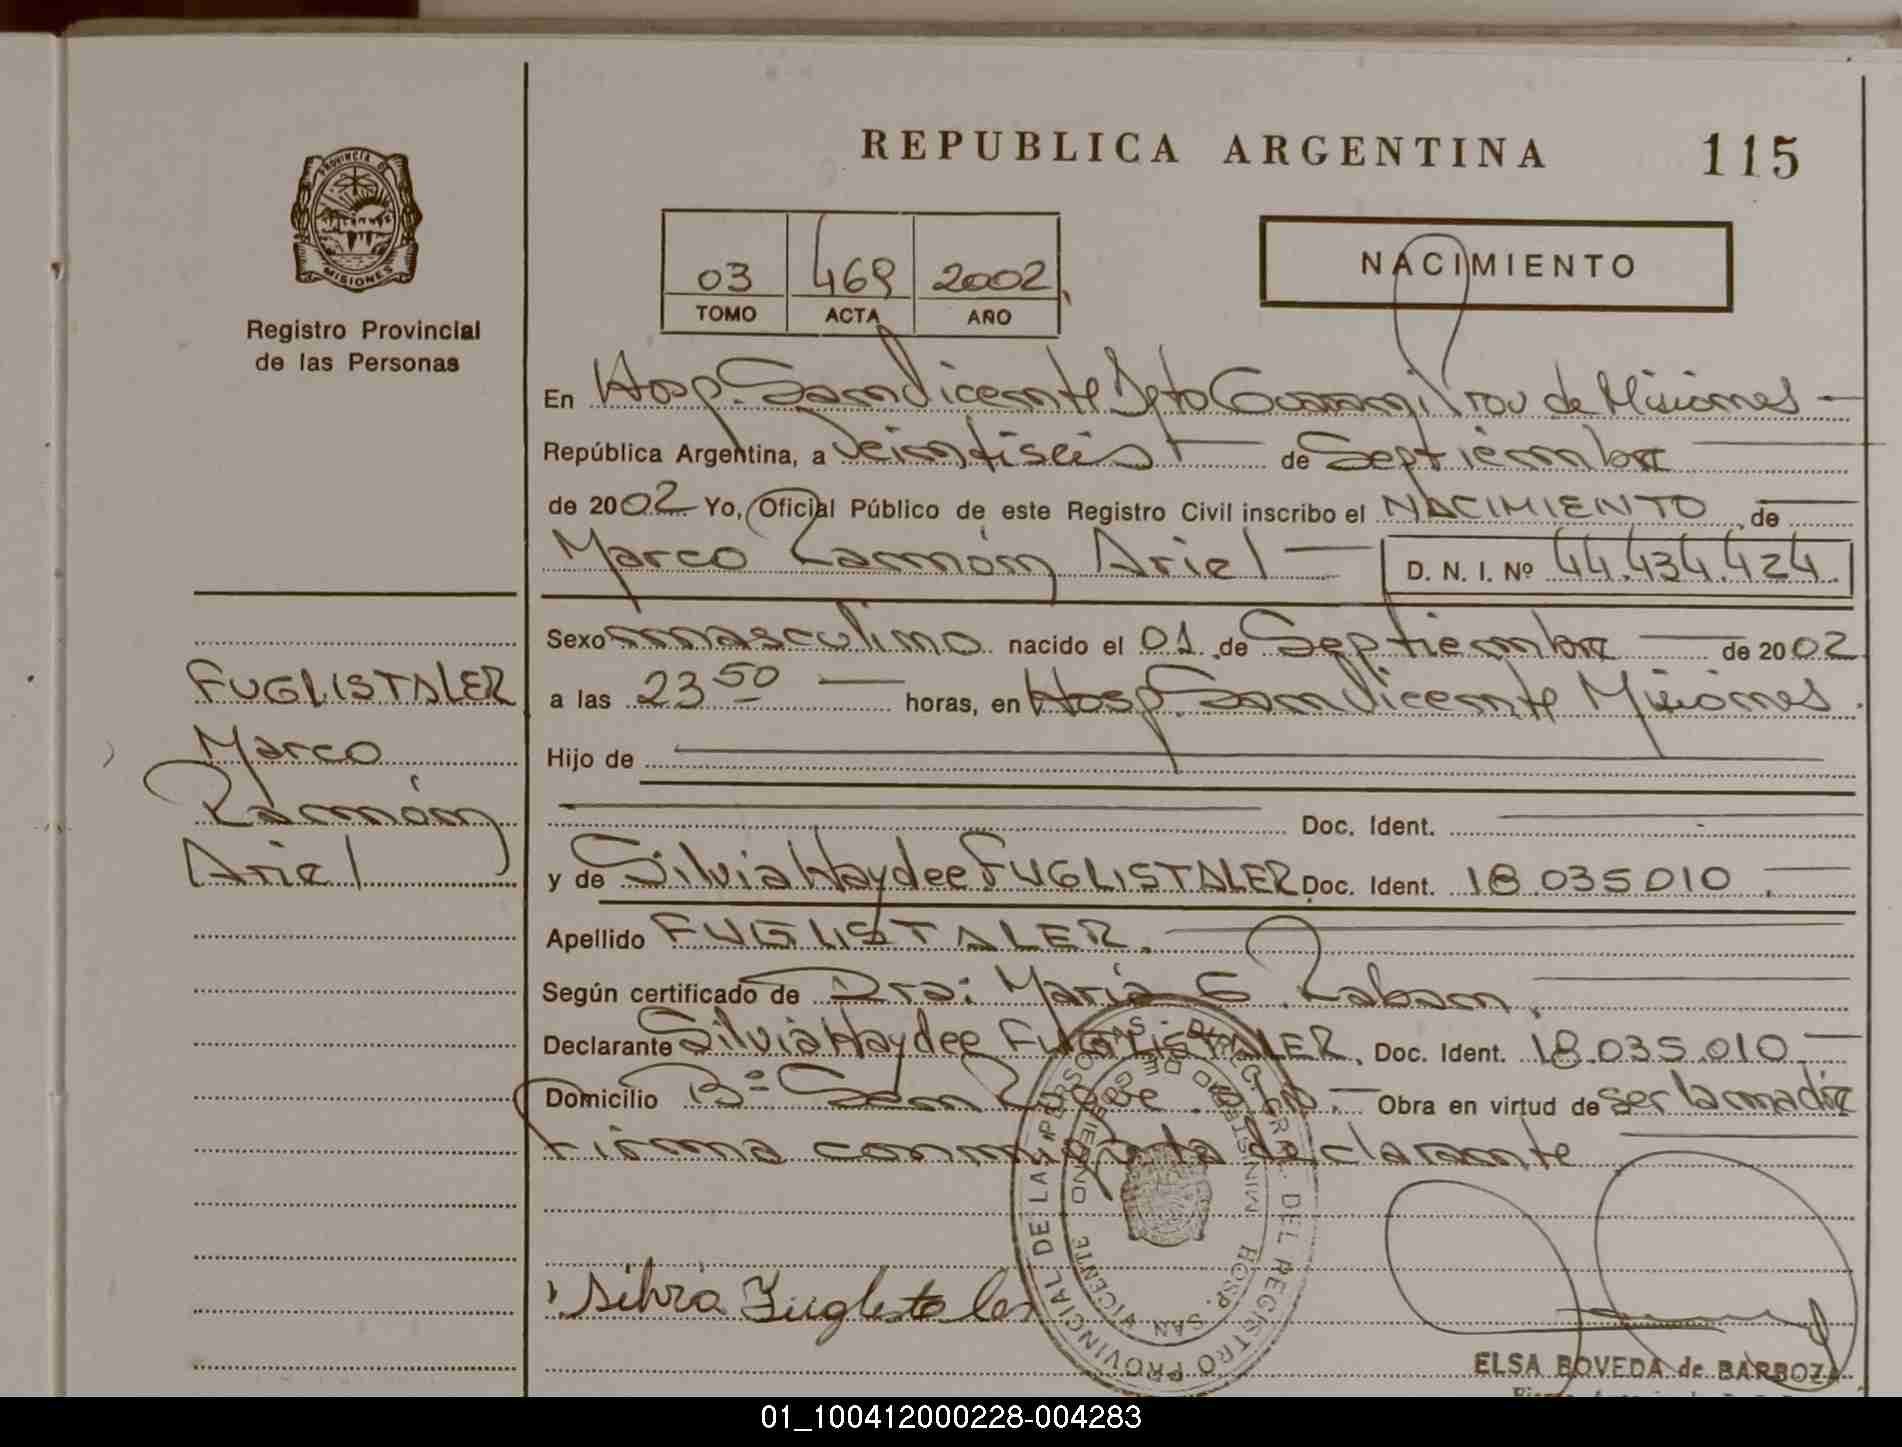 REPUBLICA ARGENTINA 115
PROVINCIA DE
MISIONES
Registro Provincial
de las Personas
03 469 2002
TOMO ACTA AÑO
NACIMIENTO
En Hosp. San Vicente Dpto Guaraní Prov de Misiones
República Argentina, a Veintiseis de Septiembre
de 2002 Yo, Oficial Público de este Registro Civil inscribo el NACIMIENTO de
Marco Ramón Ariel D. N. I. Nº 44.434.424
Sexo masculino nacido el 01 de Septiembre de 2002
a las 23 50 horas, en Hosp. San Vicente Misiones
Hijo de
Doc. Ident.
y de Silvia Haydee FUGLISTALER Doc. Ident. 18.035.010
Apellido FUGLISTALER.
Según certificado de Dra: María G.
Declarante Silvia Haydee FUGLISTALER. Doc. Ident. 18.035.010
Domicilio Bº San Roque Obra en virtud de ser la madre
Firma conmigo la declarante
FUGLISTALER
Marco
Ramón
Ariel
Silvia Fuglistaler
DEL REGISTRO PROVINCIAL DE LAS PERSONAS
MINISTERIO DE GOBIERNO
HOSP. SAN VICENTE
ELSA BOVEDA de BARBOZA
01_100412000228-004283